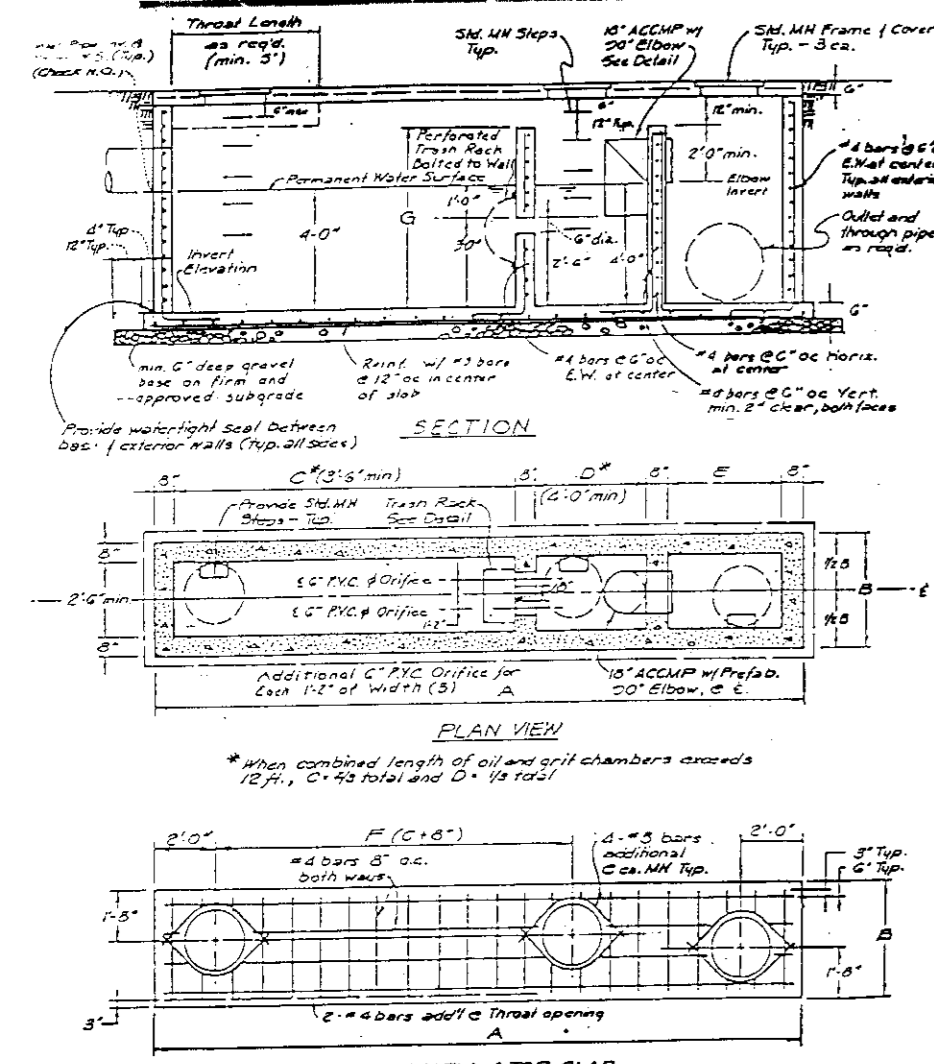 Throat Length
as req'd.
(min. 3")
(Check H.Q.)
Std. MH Steps
Typ.
18" ACCMP w/
90° Elbow
See Detail
Std. MH Frame & Cover
Typ. - 3 ea.
6"
6" max
6"
12" Typ.
12" min.
2'0" min.
Elbow
Invert
Perforated
Trash Rack
Bolted to Wall
Permanent Water Surface
1'-0"
G
4'-0"
6" dia.
2'-6"
4'-0"
#4 bars @ 6"
E.W. at center
Typ. all exterior
walls
Outlet and
through pipe
as req'd.
4" Typ
12" Typ.
Invert
Elevation
6"
min. 6" deep gravel
base on firm and
approved subgrade
Reinf. w/ #3 bars
@ 12" oc in center
of slab
#4 bars @ 6" oc
E.W. at center
#4 bars @ 6" oc Horiz.
at center
#4 bars @ 6" oc Vert.
min. 2" clear, both faces
Provide watertight seal between
base & exterior walls (typ. all sides)
SECTION
8"
C* (3'-6" min)
8"
D*
(4'-0" min)
8"
E
8"
Provide Std. MH
Steps - Typ.
Trash Rack
See Detail
8"
2'-6" min
8"
℄ 6" P.V.C. ϕ Orifice
℄ 6" P.V.C. ϕ Orifice
1'-2"
18"
1/2 B
B
1/2 B
℄
Additional 6" P.V.C. Orifice for
Each 1'-2" of Width (B)
A
18" ACCMP w/ Prefab.
90° Elbow, @ ℄.
PLAN VIEW
* When combined length of oil and grit chambers exceeds
12 ft., C = 2/3 total and D = 1/3 total
2'-0"
F (C+8")
#4 bars 8" o.c.
both ways
4-#5 bars
additional
@ ea. MH Typ.
2'-0"
3" Typ.
6" Typ.
1'-8"
B
1'-8"
3"
2-#4 bars add'l @ Throat opening
A
TOP SLAB